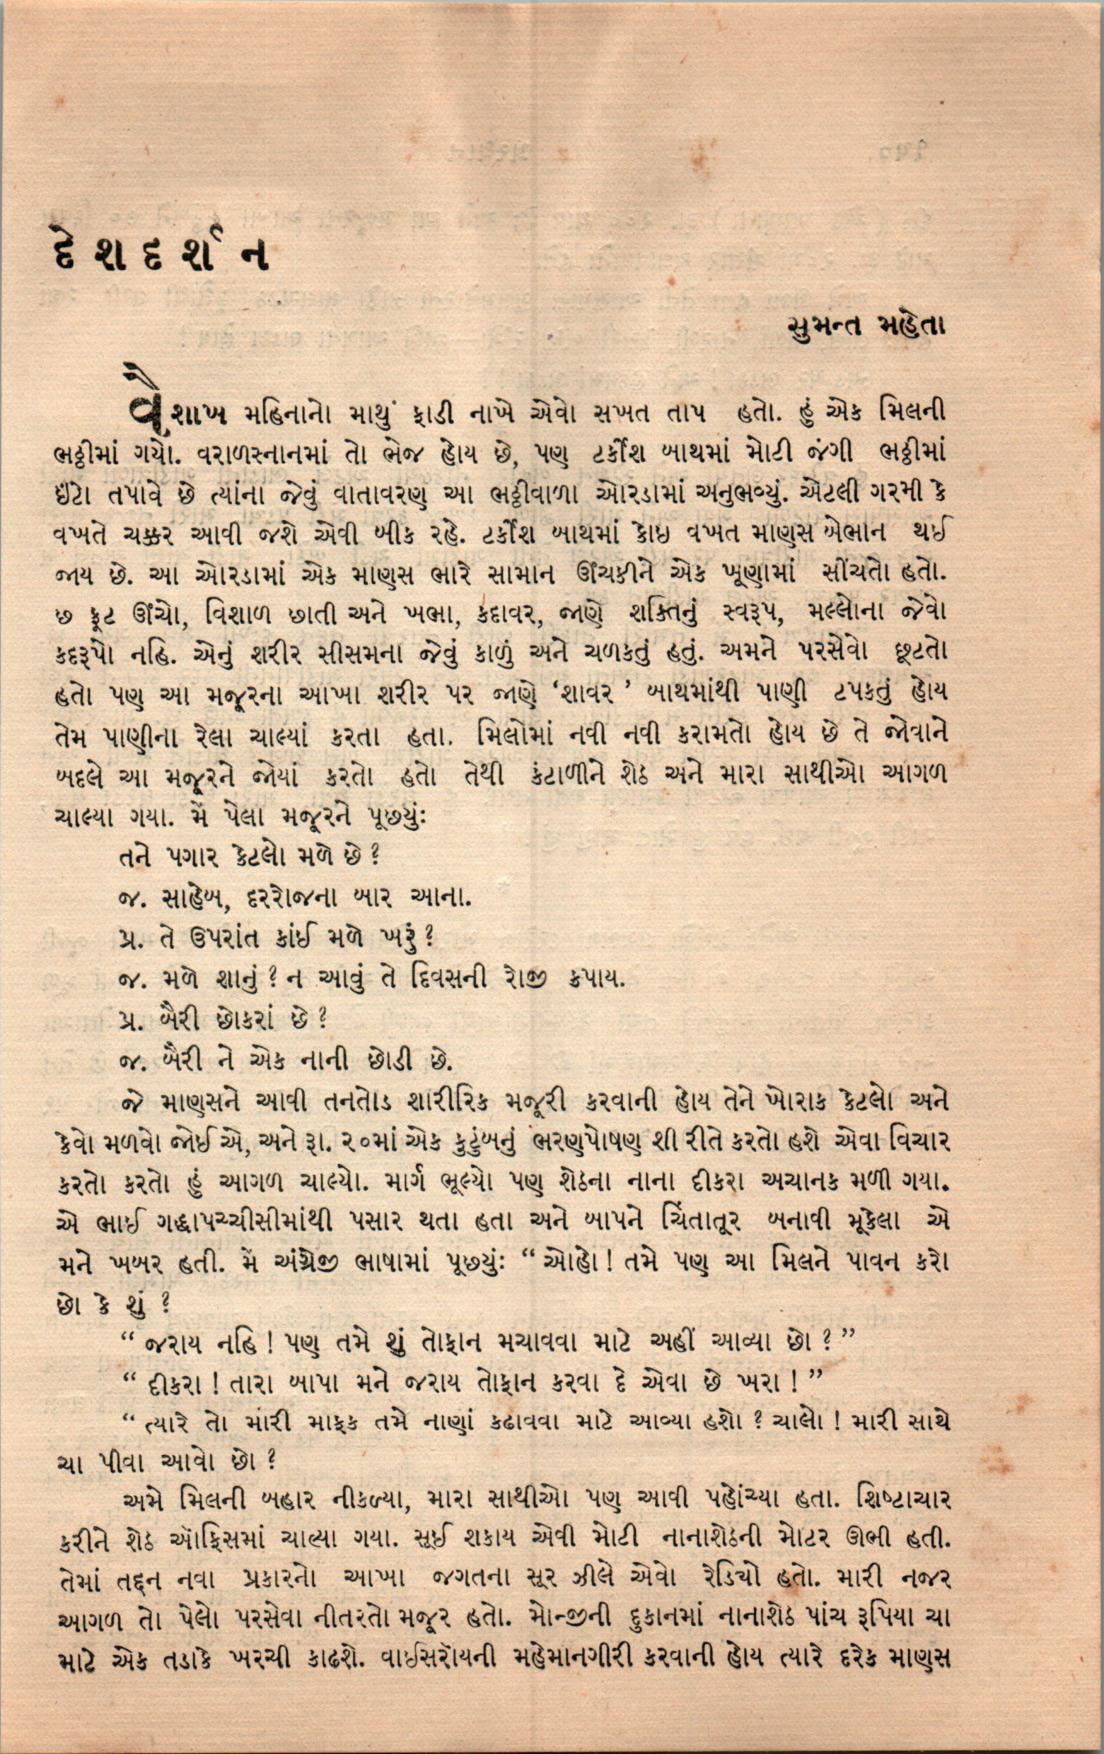 દેશદર્શન
સુમન્ત મહેતા
વૈશાખ મહિનાનો માથું ફાડી નાખે એવો સખત તાપ હતો. હું એક મિલની
ભઠ્ઠીમાં ગયો. વરાળસ્નાનમાં તો ભેજ હોય છે, પણ ટર્કીશ બાથમાં મોટી જંગી ભઠ્ઠીમાં
ઇંટો તપાવે છે ત્યાંના જેવું વાતાવરણ આ ભઠ્ઠીવાળા ઓરડામાં અનુભવ્યું. એટલી ગરમી કે
વખતે ચક્કર આવી જશે એવી બીક રહે. ટર્કીશ બાથમાં કોઇ વખત માણસ બેભાન થઈ
જાય છે. આ ઓરડામાં એક માણસ ભારે સામાન ઊંચકીને એક ખૂણામાં સીંચતો હતો.
છ ફૂટ ઊંચો, વિશાળ છાતી અને ખભા, કદાવર, જાણે શક્તિનું સ્વરૂપ, મલ્લોના જેવો
કદરૂપો નહિ. એનું શરીર સીસમના જેવું કાળું અને ચળકતું હતું. અમને પરસેવો છૂટતો
હતો પણ આ મજૂરના આખા શરીર પર જાણે ‘શાવર’ બાથમાંથી પાણી ટપકતું હોય
તેમ પાણીના રેલા ચાલ્યાં કરતા હતા. મિલોમાં નવી નવી કરામતો હોય છે તે જોવાને
બદલે આ મજૂરને જોયાં કરતો હતો તેથી કંટાળીને શેઠ અને મારા સાથીઓ આગળ
ચાલ્યા ગયા. મેં પેલા મજૂરને પૂછ્યુંઃ
તને પગાર કેટલો મળે છે?
જ. સાહેબ, દરરોજના બાર આના.
પ્ર. તે ઉપરાંત કાંઈ મળે ખરું?
જ. મળે શાનું? ન આવું તે દિવસની રોજી કપાય.
પ્ર. બૈરી છોકરાં છે?
જ. બૈરી ને એક નાની છોડી છે.
જે માણસને આવી તનતોડ શારીરિક મજૂરી કરવાની હોય તેને ખોરાક કેટલો અને
કેવો મળવો જોઈએ, અને રૂા. ૨૦માં એક કુટુંબનું ભરણપોષણ શી રીતે કરતો હશે એવા વિચાર
કરતો કરતો હું આગળ ચાલ્યો. માર્ગ ભૂલ્યો પણ શેઠના નાના દીકરા અચાનક મળી ગયા.
એ ભાઈ ગદ્ધાપચ્ચીસીમાંથી પસાર થતા હતા અને બાપને ચિંતાતૂર બનાવી મૂકેલા એ
મને ખબર હતી. મેં અંગ્રેજી ભાષામાં પૂછ્યુંઃ “ઓહો! તમે પણ આ મિલને પાવન કરો
છો કે શું?
“જરાય નહિ! પણ તમે શું તોફાન મચાવવા માટે અહીં આવ્યા છો?”
“દીકરા! તારા બાપા મને જરાય તોફાન કરવા દે એવા છે ખરા!”
“ત્યારે તો મારી માફક તમે નાણાં કઢાવવા માટે આવ્યા હશો? ચાલો! મારી સાથે
ચા પીવા આવો છો?
અમે મિલની બહાર નીકળ્યા, મારા સાથીઓ પણ આવી પહોંચ્યા હતા. શિષ્ટાચાર
કરીને શેઠ ઑફિસમાં ચાલ્યા ગયા. સૂઈ શકાય એવી મોટી નાનાશેઠની મોટર ઊભી હતી.
તેમાં તદ્દન નવા પ્રકારનો આખા જગતના સૂર ઝીલે એવો રેડિયો હતો. મારી નજર
આગળ તો પેલો પરસેવા નીતરતો મજૂર હતો. મોન્જીની દુકાનમાં નાનાશેઠ પાંચ રૂપિયા ચા
માટે એક તડાકે ખરચી કાઢશે. વાઈસરૉયની મહેમાનગીરી કરવાની હોય ત્યારે દરેક માણસ